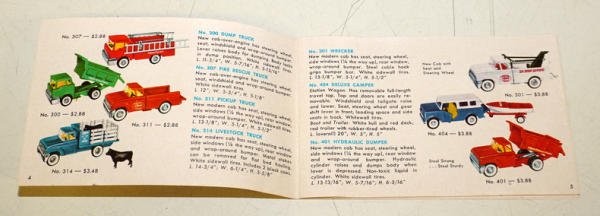 No. 307 — $2.88
No. 300 — $2.88
No. 311 — $2.88
No. 314 — $3.48
4
No. 300 DUMP TRUCK
New cab-over-engine has steering wheel,
seat, windshield and wrap-around bumper.
Lever raises body for dumping. Body locks
in dump position. White sidewall tires.
No. 307 FIRE RESCUE TRUCK
New cab-over-engine has steering wheel,
seat, windshield and wrap-around bumper.
White sidewall tires.
No. 311 PICKUP TRUCK
New modern cab has seat, steering wheel,
side windows (¼ the way up), rear window
and wrap-around bumper. White sidewall
tires.
No. 314 LIVESTOCK TRUCK
New modern cab has seat, steering wheel,
side windows (¼ the way up), rear window
and wrap-around bumper. Stake
can be removed for flat bed hauling.
White sidewall tires. Includes 2 black cows.
No. 301 WRECKER
New modern cab has seat, steering wheel,
side windows (¼ the way up), rear window,
wrap-around bumper. Steel cable hook
grips bumper bar. White sidewall tires.
No. 404 DELUXE CAMPER
Station Wagon. Has removable full-length
travel top. Top and doors are easily re-
movable. Windshield and tailgate raise
and lower. Seat, steering wheel and gear
shift lever in front; loading space and side
seats in back. Whitewall tires.
Boat and Trailer. White hull and red deck,
red trailer with rubber-tired wheels.
No. 401 HYDRAULIC DUMPER
New modern cab has seat, steering wheel,
side windows (¼ the way up), rear window
and wrap-around bumper. Hydraulic
cylinder raises and dumps body when
lever is depressed. Non-toxic liquid in
cylinder. White sidewall tires.
New Cab with
Seat and
Steering Wheel
No. 301 — $3.88
No. 404 — $3.88
Steel Strong
... Steel Sturdy
No. 401 — $3.88
5